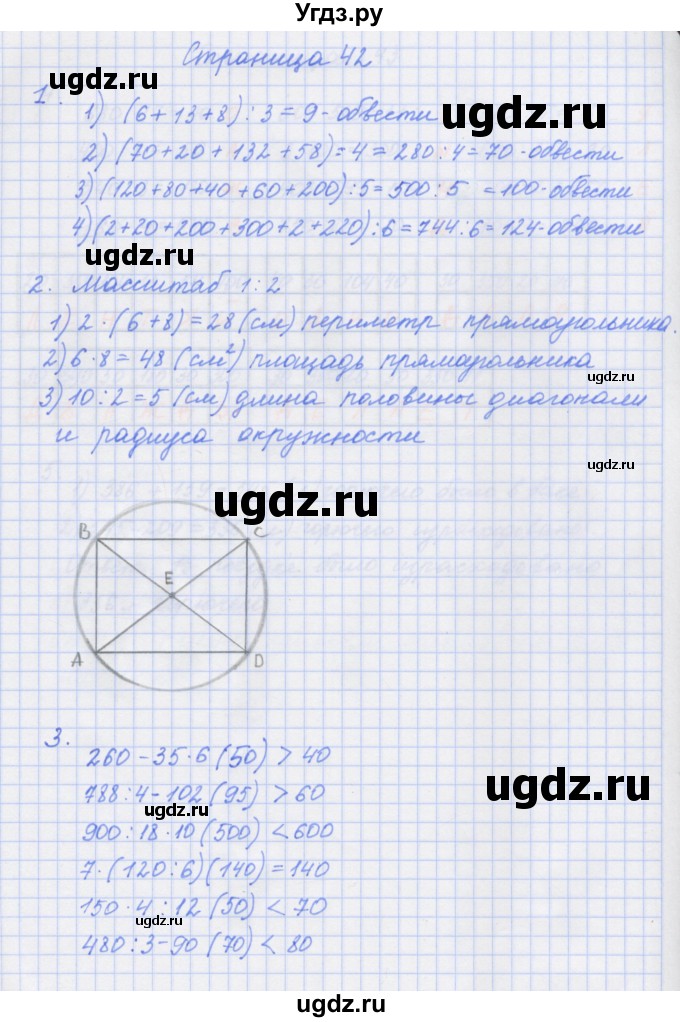 Угдз.ру
Страница 42
ugdz.ru
1. 1) (6+13+8):3=9-обвести
ugdz.ru
2) (70+20+132+58)=4=280:4=70-обвести
3) (120+80+40+60+200):5=500:5 =100-обвести
4) (2+20+200+300+2+220):6=744:6=124-обвести
ugdz.ru
2. Масштаб 1:2
1) 2·(6+8)=28(см) периметр прямоугольника.
2) 6·8=48(см²) площадь прямоугольника
ugdz.ru
3) 10:2=5(см) длина половины диагонали
и радиуса окружности
ugdz.ru
ugdz.ru
B C
E
A D
3.
260-35·6(50)>40
ugdz.ru
788:4-102(95)>60
ugdz.ru
900:18·10(500)<600
7·(120:6)(140)=140
150·4:12(50)<70
ugdz.ru
480:3-90(70)<80
ugdz.ru